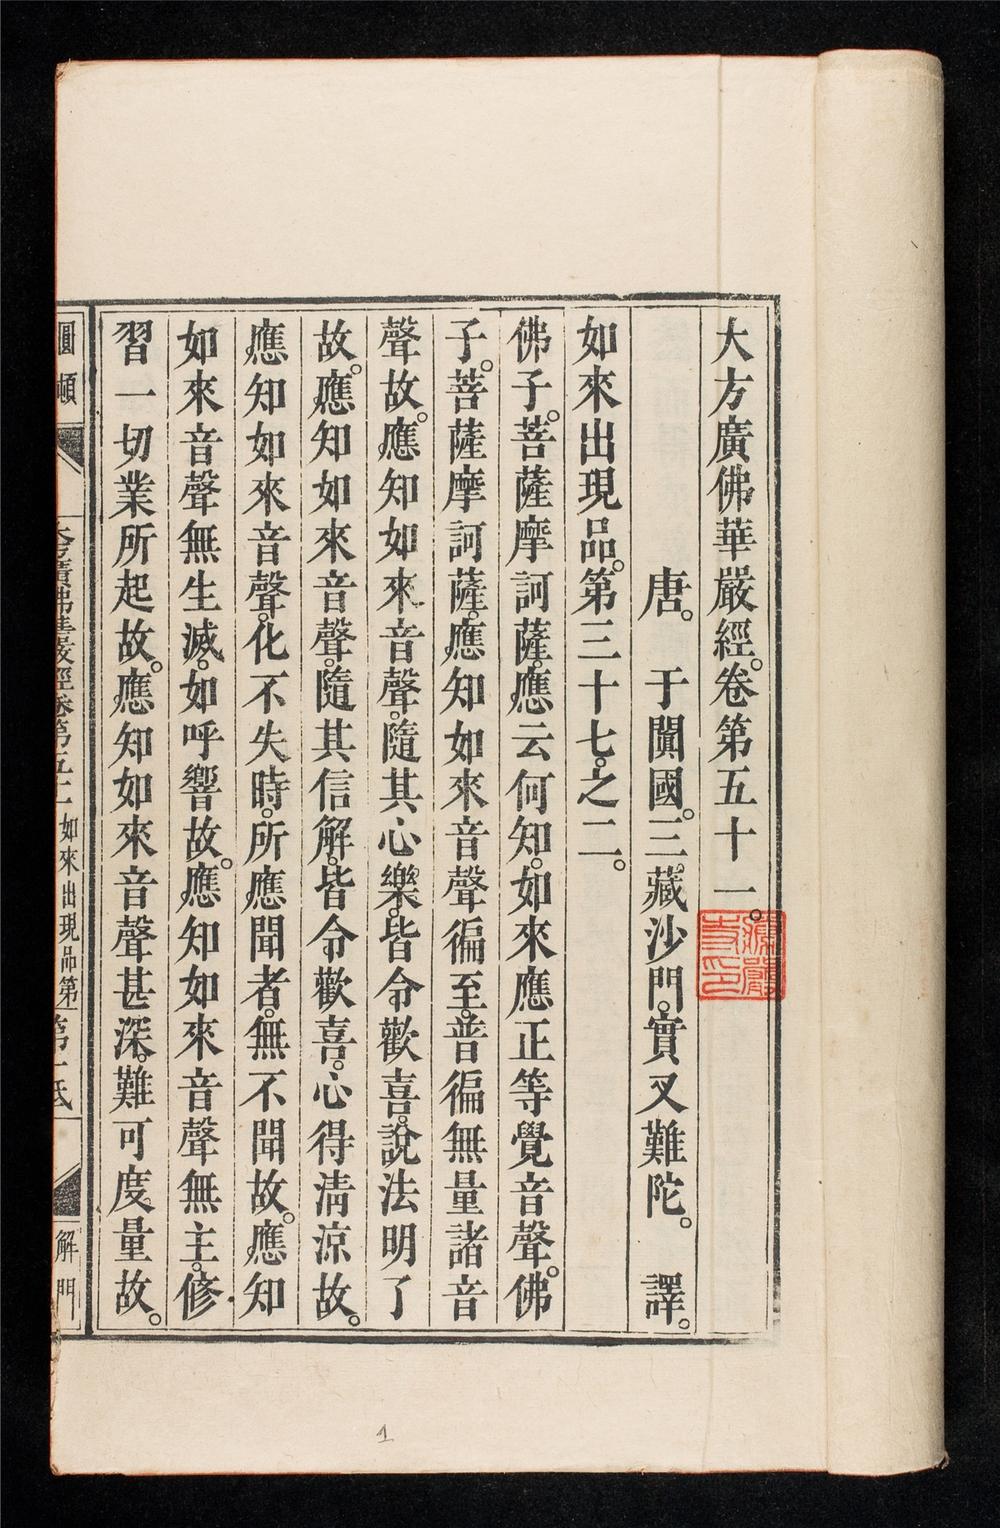 大方廣佛華嚴經。卷第五十一。
唐。于闐國。三藏沙門。實叉難陀。譯。
如來出現品。第三十七。之二。
佛子。菩薩摩訶薩。應云何知。如來應正等覺音聲。佛
子。菩薩摩訶薩。應知如來音聲徧至。普徧無量諸音
聲故。應知如來音聲。隨其心樂。皆令歡喜。說法明了
故。應知如來音聲。隨其信解。皆令歡喜。心得清涼故。
應知如來音聲。化不失時。所應聞者。無不聞故。應知
如來音聲無生滅。如呼響故。應知如來音聲無主。修
習一切業所起故。應知如來音聲甚深。難可度量故。
圓頓
大方廣佛華嚴經卷第五十一 如來出現品第
解門
1